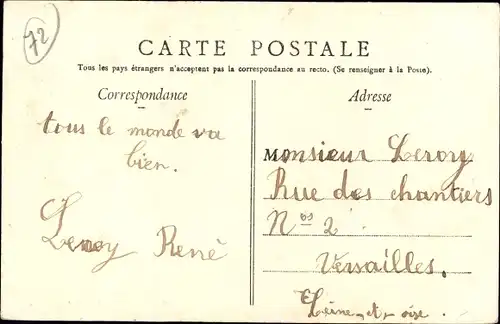 72
CARTE POSTALE
Tous les pays étrangers n'acceptent pas la correspondance au recto. (Se renseigner à la Poste).
Correspondance
tous le monde va
bien.
Leroy René
Adresse
Monsieur Leroy
Rue des chantiers
Nos 2
Versailles.
Seine-et-oise.